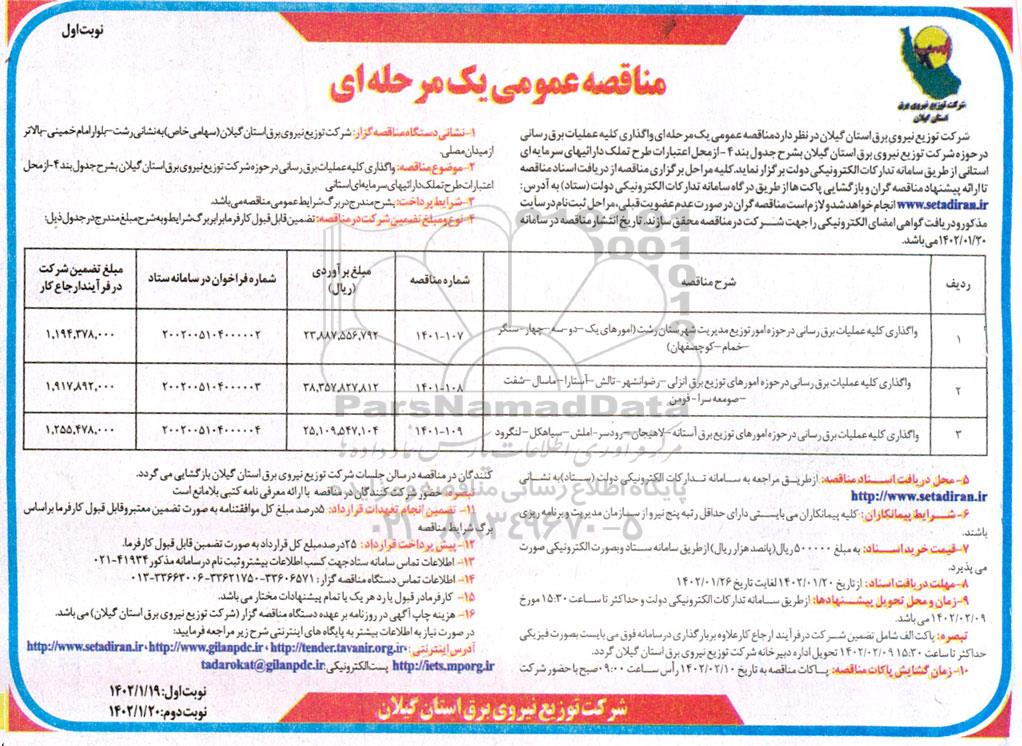 نوبت اول
شرکت توزیع نیروی برق
استان گیلان
مناقصه عمومی یک مرحله ای
شرکت توزیع نیروی برق استان گیلان در نظر دارد مناقصه عمومی یک مرحله ای واگذاری کلیه عملیات برق رسانی
در حوزه شرکت توزیع نیروی برق استان گیلان بشرح جدول بند ۴- از محل اعتبارات طرح تملک دارائیهای سرمایه ای
استانی از طریق سامانه تدارکات الکترونیکی دولت برگزار نماید. کلیه مراحل برگزاری مناقصه از دریافت اسناد مناقصه
تا ارائه پیشنهاد مناقصه گران و بازگشایی پاکت ها از طریق درگاه سامانه تدارکات الکترونیکی دولت (ستاد) به آدرس:
www.setadiran.ir انجام خواهد شد و لازم است مناقصه گران در صورت عدم عضویت قبلی، مراحل ثبت نام در سایت
مذکور و دریافت گواهی امضای الکترونیکی را جهت شرکت در مناقصه محقق سازند. تاریخ انتشار مناقصه در سامانه
۱۴۰۲/۰۱/۲۰ می باشد.
۱- نشانی دستگاه مناقصه گزار: شرکت توزیع نیروی برق استان گیلان (سهامی خاص) به نشانی رشت- بلوار امام خمینی- بالاتر
از میدان مصلی.
۲- موضوع مناقصه: واگذاری کلیه عملیات برق رسانی در حوزه شرکت توزیع نیروی برق استان گیلان بشرح جدول بند ۴- از محل
اعتبارات طرح تملک دارائیهای سرمایه ای استانی
۳- شرایط پرداخت: بشرح مندرج در برگ شرایط عمومی مناقصه می باشد.
۴- نوع و مبلغ تضمین شرکت در مناقصه: تضمین قابل قبول کارفرما برابر برگ شرایط و به شرح مبلغ مندرج در جدول ذیل:
ردیف شرح مناقصه شماره مناقصه مبلغ برآوردی (ریال) شماره فراخوان در سامانه ستاد مبلغ تضمین شرکت در فرآیند ارجاع کار
۱ واگذاری کلیه عملیات برق رسانی در حوزه امور توزیع مدیریت شهرستان رشت (امورهای یک- دو- سه- چهار- سنگر
- خمام- کوچصفهان) ۱۴۰۱-۱۰۷ ۲۳,۸۸۷,۵۵۶,۷۹۲ ۲۰۰۲۰۰۵۱۰۴۰۰۰۰۰۲ ۱,۱۹۴,۳۷۸,۰۰۰
۲ واگذاری کلیه عملیات برق رسانی در حوزه امورهای توزیع برق انزلی- رضوانشهر- تالش- آستارا- ماسال- شفت
- صومعه سرا- فومن ۱۴۰۱-۱۰۸ ۳۸,۳۵۷,۸۲۷,۸۱۲ ۲۰۰۲۰۰۵۱۰۴۰۰۰۰۰۳ ۱,۹۱۷,۸۹۲,۰۰۰
۳ واگذاری کلیه عملیات برق رسانی در حوزه امورهای توزیع برق آستانه- لاهیجان- رودسر- املش- سیاهکل- لنگرود ۱۴۰۱-۱۰۹ ۲۵,۱۰۹,۵۴۷,۱۰۴ ۲۰۰۲۰۰۵۱۰۴۰۰۰۰۰۴ ۱,۲۵۵,۴۷۸,۰۰۰
ParsNamadData
پایگاه اطلاع رسانی مناقصه و مزایده
۰۲۱-۸۸۳۴۹۶۷۰-۵
۵- محل دریافت اسناد مناقصه: از طریق مراجعه به سامانه تدارکات الکترونیکی دولت (ستاد) به نشانی
http://www.setadiran.ir
۶- شرایط پیمانکاران: کلیه پیمانکاران می بایستی دارای حداقل رتبه پنج نیرو از سازمان مدیریت و برنامه ریزی
باشند.
۷- قیمت خرید اسناد: به مبلغ ۵۰۰۰۰۰ ریال (پانصد هزار ریال) از طریق سامانه ستاد و بصورت الکترونیکی صورت
می پذیرد.
۸- مهلت دریافت اسناد: از تاریخ ۱۴۰۲/۰۱/۲۰ لغایت تاریخ ۱۴۰۲/۰۱/۲۶
۹- زمان و محل تحویل پیشنهادها: از طریق سامانه تدارکات الکترونیکی دولت و حداکثر تا ساعت ۱۵:۳۰ مورخ
۱۴۰۲/۰۲/۰۹ می باشد.
تبصره: پاکت الف شامل تضمین شرکت در فرآیند ارجاع کار علاوه بر بارگذاری در سامانه فوق می بایست بصورت فیزیکی
حداکثر تا ساعت ۱۵:۳۰ ۱۴۰۲/۰۲/۰۹ تحویل اداره دبیرخانه شرکت توزیع نیروی برق استان گیلان گردد.
۱۰- زمان گشایش پاکات مناقصه: پاکات مناقصه به تاریخ ۱۴۰۲/۰۲/۱۰ رأس ساعت ۰۹:۰۰ صبح با حضور شرکت
کنندگان در مناقصه در سالن جلسات شرکت توزیع نیروی برق استان گیلان بازگشایی می گردد.
تبصره: حضور شرکت کنندگان در مناقصه با ارائه معرفی نامه کتبی بلامانع است
۱۱- تضمین انجام تعهدات قرارداد: ۵ درصد مبلغ کل موافقتنامه به صورت تضمین معتبر و قابل قبول کارفرما بر اساس
برگ شرایط مناقصه
۱۲- پیش پرداخت قرارداد: ۲۵ درصد مبلغ کل قرارداد به صورت تضمین قابل قبول کارفرما.
۱۳- اطلاعات تماس سامانه ستاد جهت کسب اطلاعات بیشتر و ثبت نام در سامانه مذکور ۴۱۹۳۴-۰۲۱
۱۴- اطلاعات تماس دستگاه مناقصه گزار: ۳۳۶۰۶۵۷۱-۳۳۶۲۱۷۵۰-۳۳۶۶۳۰۰۶-۰۱۳
۱۵- کارفرما در قبول یا رد هر یک یا تمام پیشنهادات مختار می باشد.
۱۶- هزینه چاپ آگهی در روزنامه بر عهده دستگاه مناقصه گزار (شرکت توزیع نیروی برق استان گیلان) می باشد.
در صورت نیاز به اطلاعات بیشتر به پایگاه های اینترنتی شرح زیر مراجعه فرمایید:
آدرس اینترنتی: http://www.setadiran.ir، http://www.gilanpdc.ir، http://tender.tavanir.org.ir،
http://iets.mporg.ir پست الکترونیکی: tadarokat@gilanpdc.ir
نوبت اول: ۱۴۰۲/۱/۱۹
نوبت دوم: ۱۴۰۲/۱/۲۰
شرکت توزیع نیروی برق استان گیلان